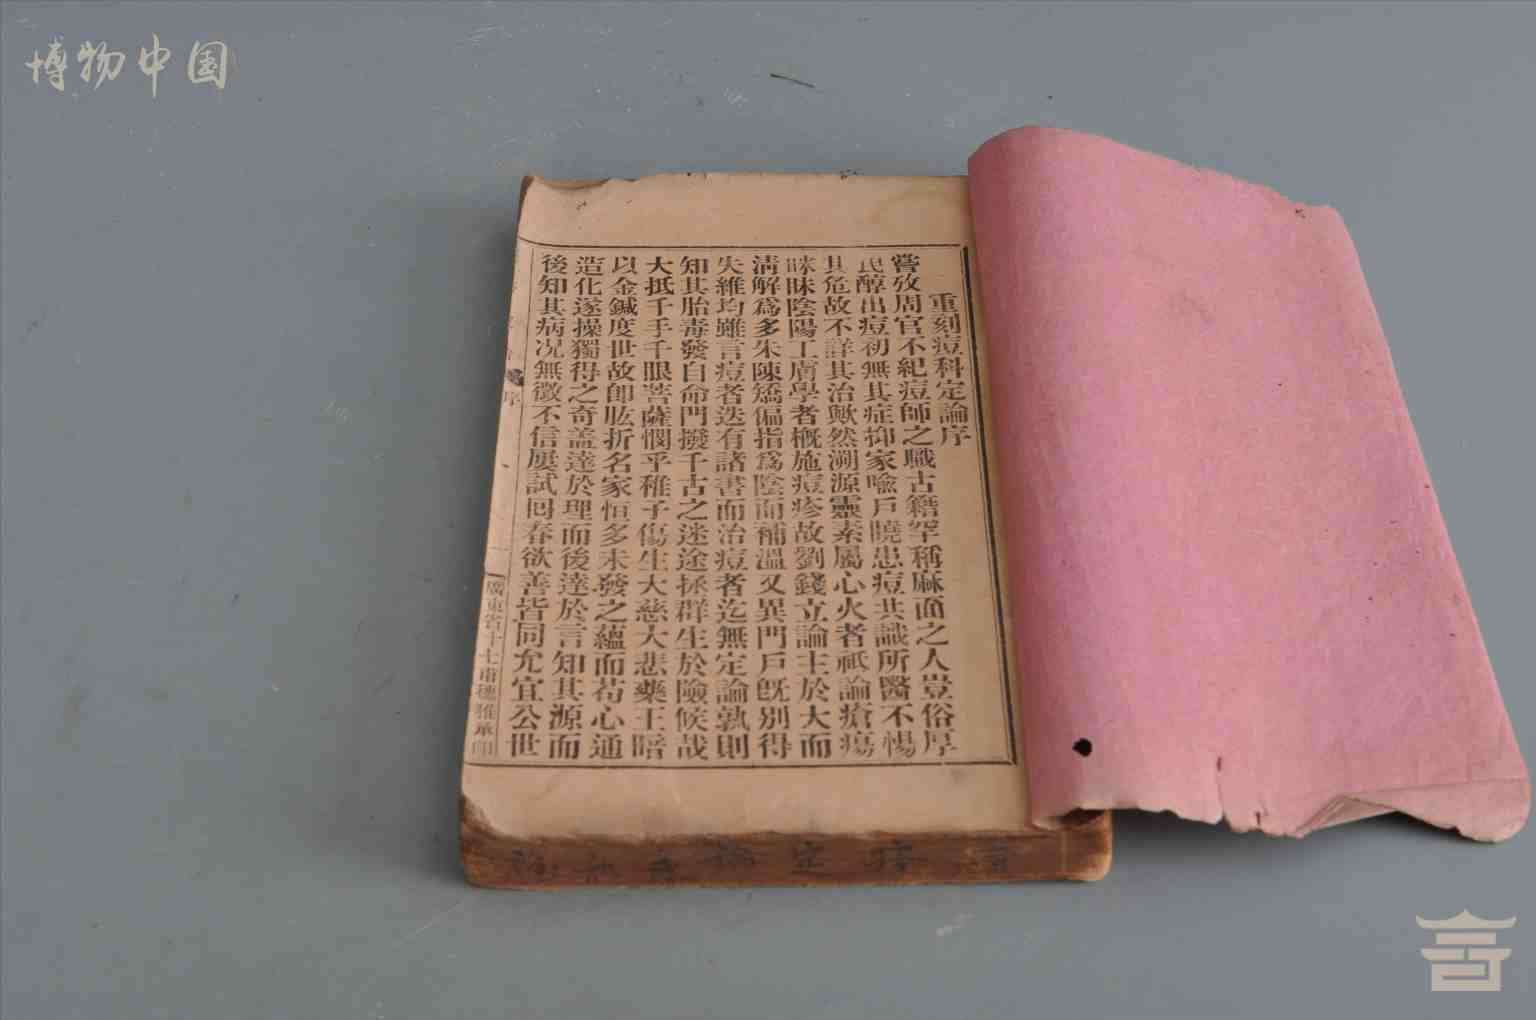 博物中国
重刻痘科定論序
嘗攷周官不紀痘師之職古籍罕稱麻面之人豈俗厚
民醇出痘初無其症抑家喻戶曉患痘共識所醫不惕
其危故不詳其治歟然溯源靈素屬心火者祇論瘡瘍
昧昧陰陽工膚學者概施痘疹故劉錢立論主於大而
清解為多朱陳矯偏指為陰而補溫又異門戶旣別得
失維均雖言痘者迭有諸書而治痘者迄無定論孰則
知其胎毒發自命門撥千古之迷途拯群生於險候哉
大抵千手千眼菩薩憫乎稚子傷生大慈大悲藥王賠
以金鍼度世故卽肱折名家恒多未發之蘊而苦心通
造化遂操獨得之奇蓋達於理而後達於言知其源而
後知其病况無徵不信屢試囘春欲善皆同允宜公世
序
廣東省十七甫穗雅承印
定論